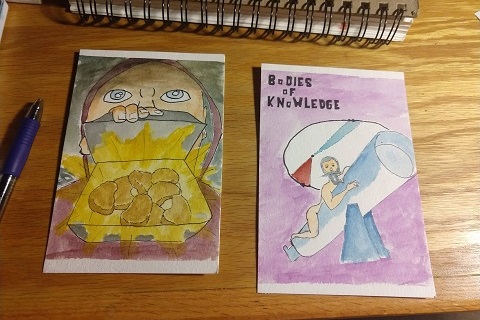 BoDIES
oF
KNoWLEDGE